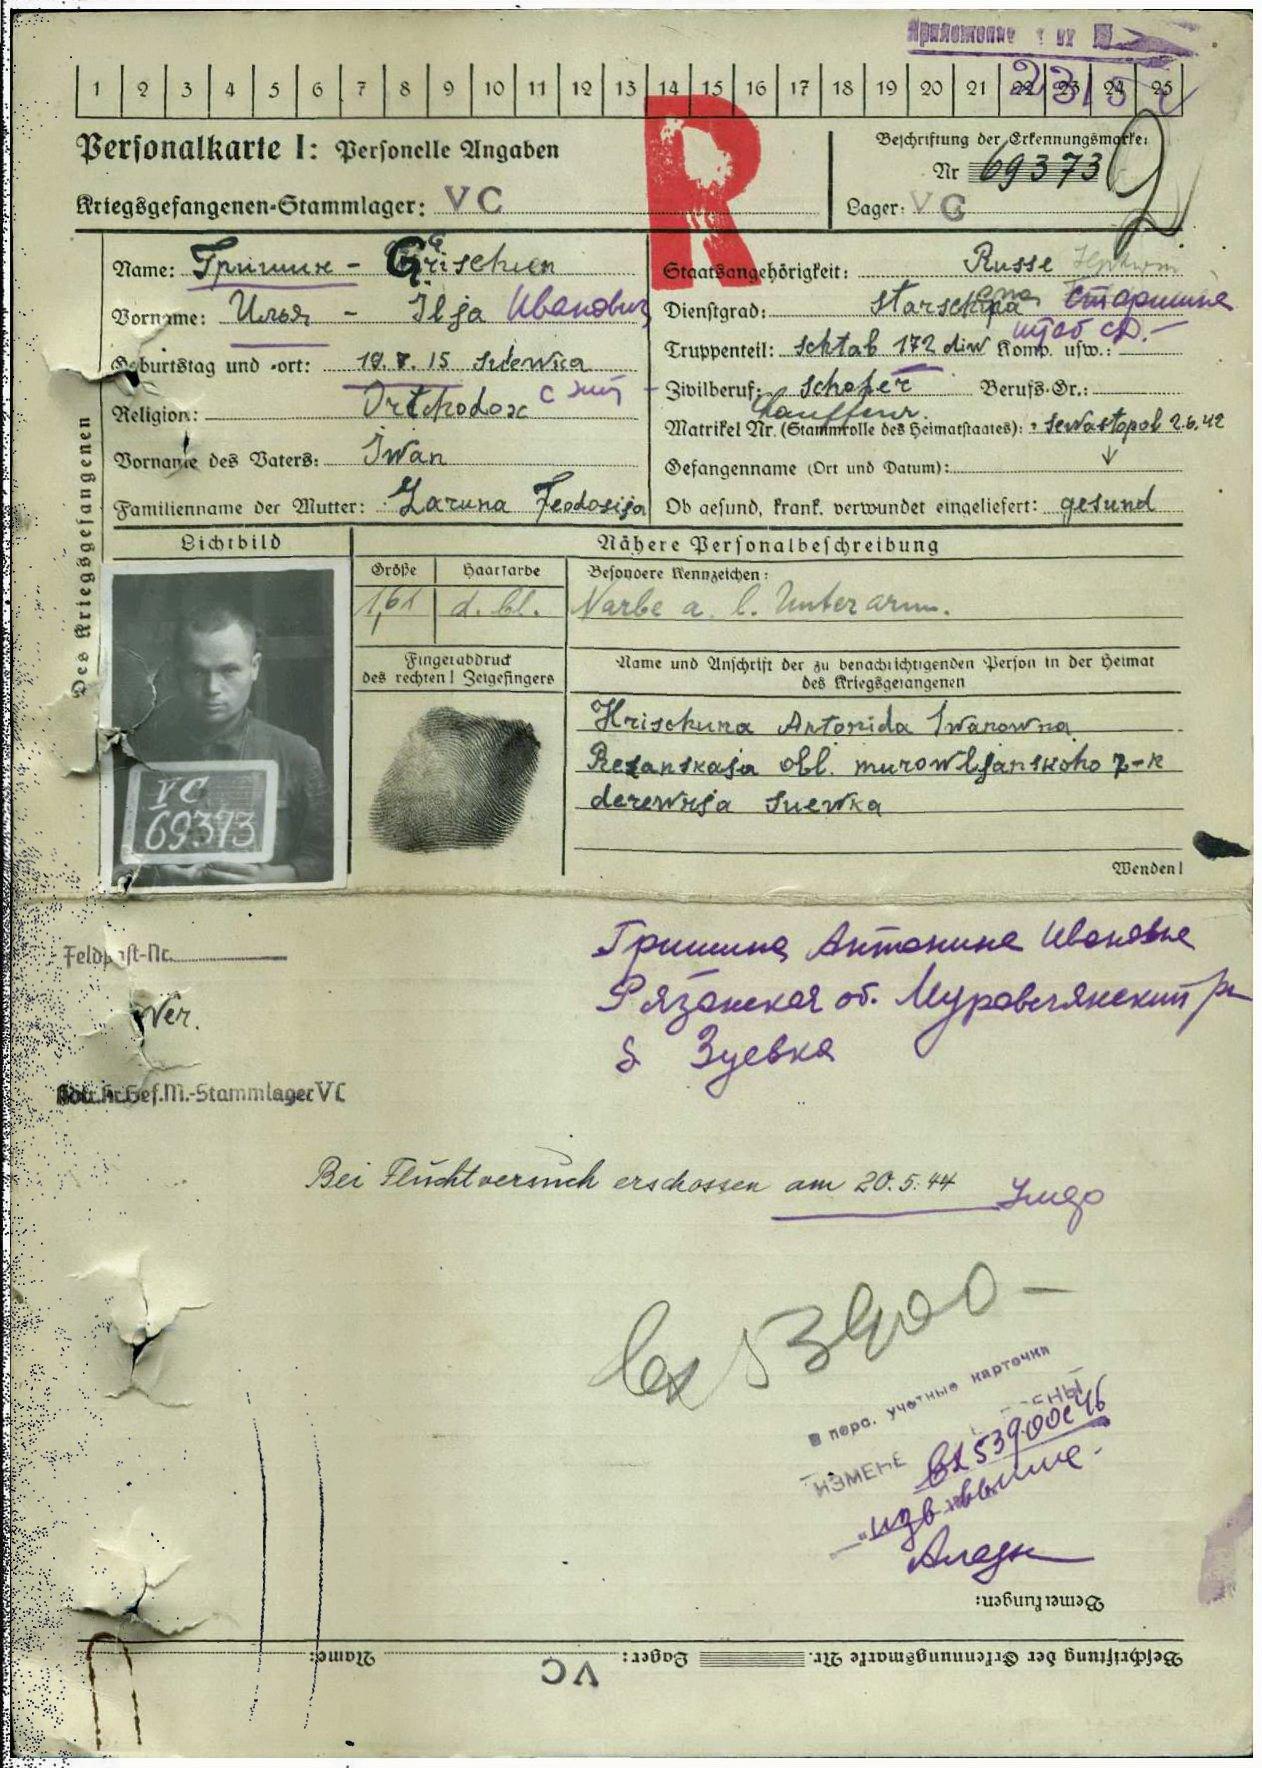 Приложение
1 2 3 4 5 6 7 8 9 10 11 12 13 14 15 16 17 18 19 20 21 22 23 24 25
Personalkarte I: Personelle Angaben
Kriegsgefangenen-Stammlager: VC
Beschriftung der Erkennungsmarke:
Nr 69373
Lager: VC
R
Des Kriegsgefangenen
Name: Гришин - Grischin
Vorname: Илья - Ilja Иванович
Geburtstag und -ort: 19.7.15
Religion: Ortchodox
Vorname des Vaters: Iwan
Familienname der Mutter: Feodosija
Staatsangehörigkeit: Russe
Dienstgrad: starschina старшина
Truppenteil: schtab 172 diw Komp. usw.: штаб сд.-
Zivilberuf: schofer Berufs-Gr.:
Chauffeur.
Matrikel Nr. (Stammrolle des Heimatstaates): Sewastopol 2.6.42
Gefangenname (Ort und Datum):
Ob gesund, krank, verwundet eingeliefert: gesund
Lichtbild
Nähere Personalbeschreibung
Größe
Haarfarbe
Besondere Kennzeichen:
1,61
d. bl.
Narbe a. l. Unterarm.
Fingerabdruck
des rechten! Zeigefingers
Name und Anschrift der zu benachrichtigenden Person in der Heimat
des Kriegsgefangenen
Hrischuna Antonida Iwanowna
Resanskaja obl. murowljanskoho r-k
derewnja Suewka
VC
69373
Wenden!
Feldpost-Nr.
Гришина Антонине Ивановне
Рязанская об. Муравлянский р-н
д Зуевка
Kdtr.Kr.Gef.M.-Stammlager VC
Bei Fluchtversuch erschossen am 20.5.44
вх 53900 -
в перс. учетные карточки
вх 53900с 46
Bemerkungen:
Beschriftung der Erkennungsmarke Nr. Lager: VC Name: